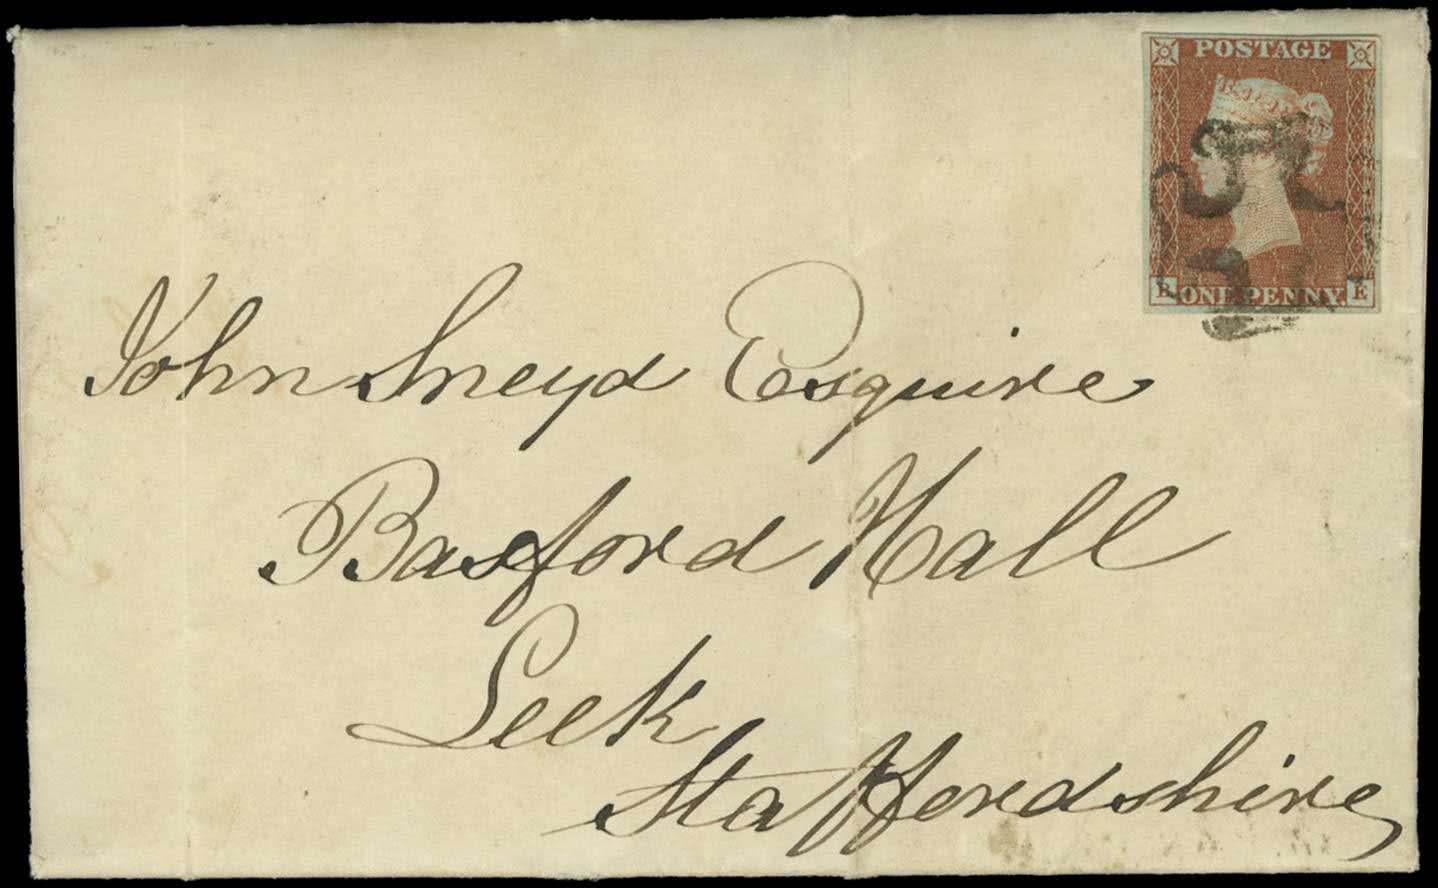 POSTAGE
E ONE PENNY. E
John Sneyd Esquire
Basford Hall
Leek
Staffordshire